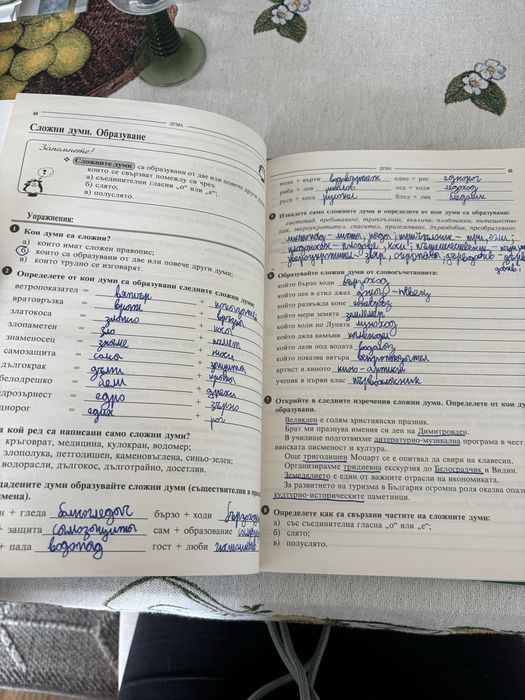 48
ДУМА
Сложни думи. Образуване
Запомнете!
Сложните думи са образувани от две или повече други думи,
които се свързват помежду си чрез:
а) съединителни гласни „о" или „е";
б) слято;
в) полуслято.
Упражнения:
1 Кои думи са сложни?
а) които имат сложен правопис;
б) които са образувани от две или повече други думи;
в) които трудно се изговарят.
2 Определете от кои думи са образувани следните сложни думи:
ветропоказател = вятър + показател
вратовръзка = врат + връзка
златокоса = злато + коса
злопаметен = зло + памет
знаменосец = знаме + нося
самозащита = сам + защита
дълъгкрак =
белодрешко =
едрозърнест = едро + зърно
еднорог = един + рог
в кой ред са написани само сложни думи?
кръговрат, медицина, кулокран, водомер;
злополука, петгодишен, каменовъглена, синьо-зелен;
водорасли, дългокос, дълготрайно, досетлив.
дадените думи образувайте сложни думи
+ гледа бързо + ходи
+ защита самозащита сам + образование
+ пада водопад гост + люби
ДУМА
49
води + върти едно + рог еднорог
риба + лов риболов лед + ходи ледоход
руса + коса русокос блед + лик бледолик
5 Извадете само сложните думи и определете от кои думи са образувани:
листопад, пребиваване, триъгълник, къпина, плодоносен, пътешестве-
ник, звероукротител, спасител, приземяване, дърводобив, преобразуване.
6 Образувайте сложни думи от словосъчетанията:
който бързо ходи бързоход
който пее в стил джаз джаз-певец
който развъжда коне коневъд
който мери земята земемер
който ходи по Луната луноход
който дяла камъни каменоделец
който лази под водата водолаз
който показва вятъра ветропоказател
артист в киното кино-артист
ученик в първи клас първокласник
7 Открийте в следните изречения сложни думи. Определете от кои думи
образувани.
Великден е голям християнски празник.
Брат ми празнува именния си ден на Димитровден.
В училище подготвихме литературно-музикална програма в чест
вянската писменост и култура.
Още тригодишен Моцарт се е опитвал да свири на клавесин.
Организирахме тридневна екскурзия до Белоградчик и Видин.
Земеделието е един от важните отрасли на икономиката.
За развитието на туризма в България огромна роля оказва опаз
културно-историческите паметници.
8 Определете как са свързани частите на сложните думи:
а) със съединителна гласна „о" или „е";
б) слято;
в) полуслято.